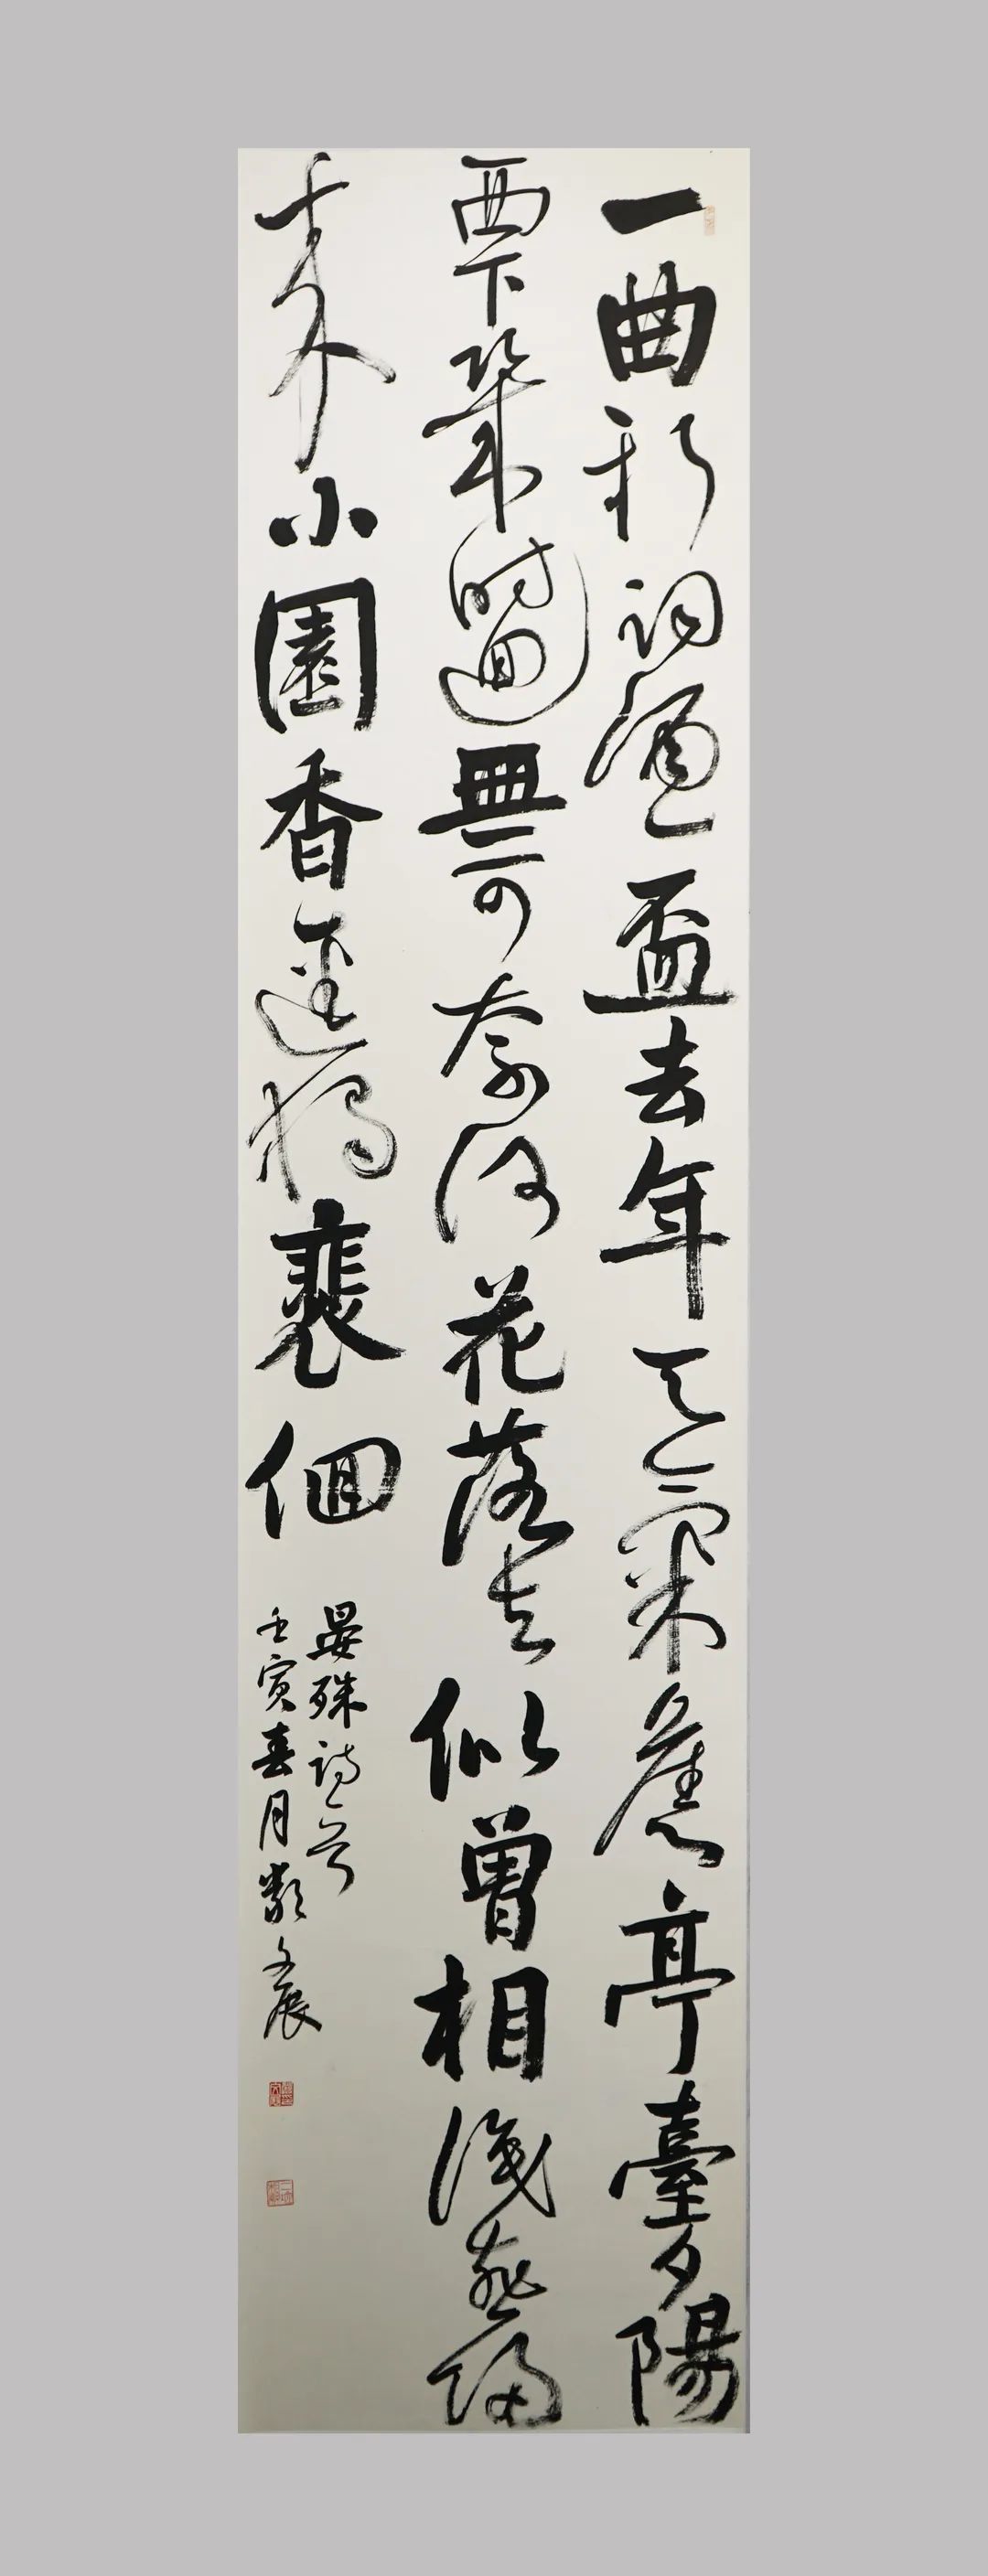 一曲新詞酒一盃去年天氣舊亭臺夕陽
西下幾時迴無可奈何花落去似曾相識燕歸
来小園香逕獨裵佪
晏殊詩一首
壬寅春月 文展